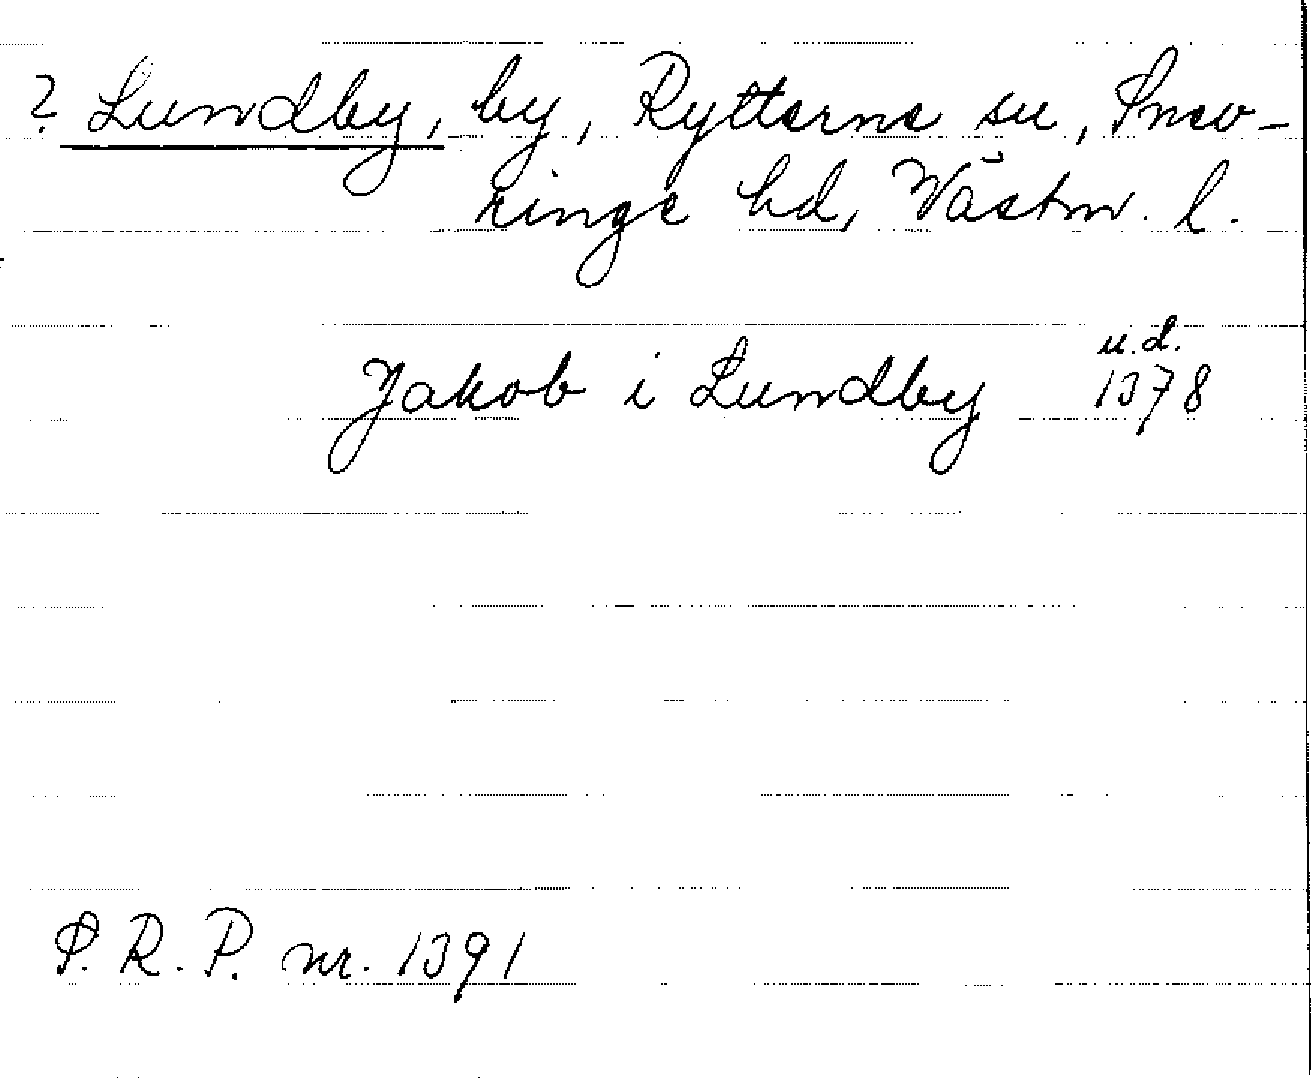 ? Lundby, by, Rytterne sn, Snev-
ringe hd, Västm. l.
u.d.
Jakob i Lundby 1378
S. R. P. nr. 1391